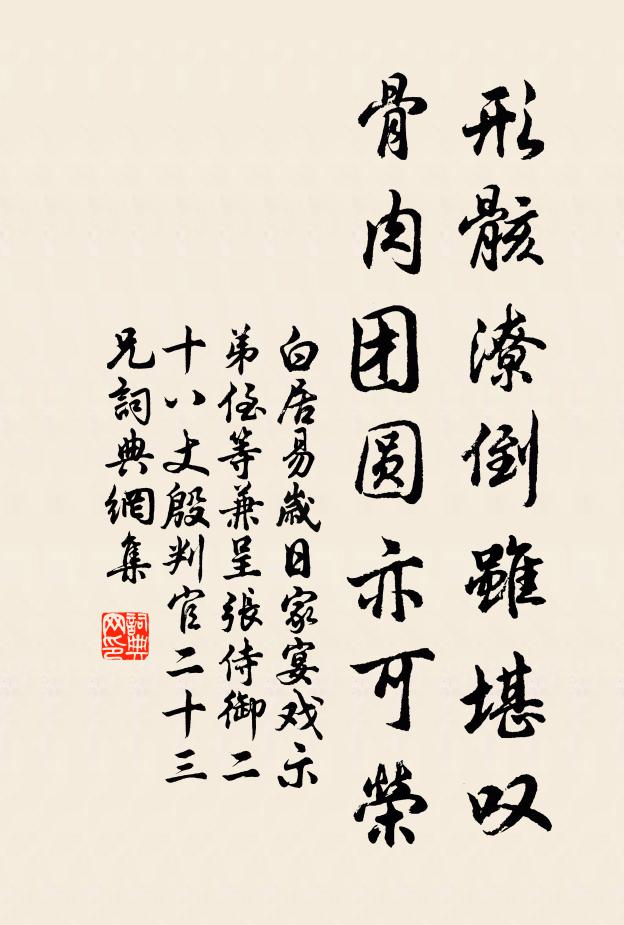 形骸潦倒雖堪叹
骨肉团圆亦可榮
白居易歲日家宴戏示
弟侄等兼呈張侍御二
十八丈殷判官二十三
兄詞典網集
詞典
网印